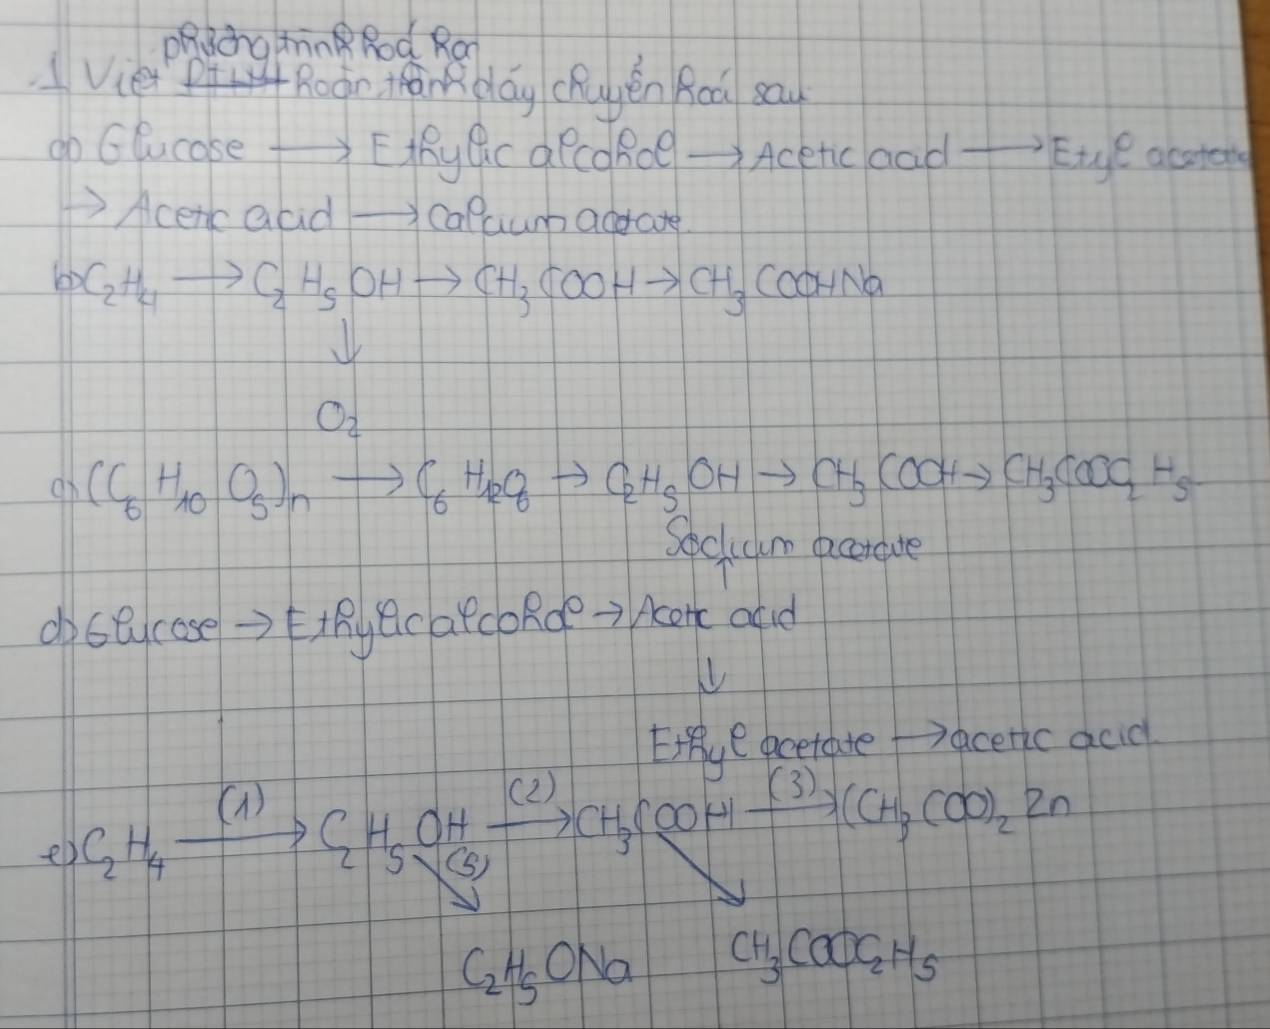 phương trình hoá học
1 Viết PTHH hoàn thành dãy chuyển hoá sau
a) Glucose → Ethylic alcohol → Acetic acid → Etyl acetate
→ Acetic acid → calcium acetate
b) C₂H₄ → C₂H₅OH → CH₃COOH → CH₃COOHNa
↓
O₂
c) (C₆H₁₀O₅)n → C₆H₁₂O₆ → C₂H₅OH → CH₃COOH → CH₃COOC₂H₅
Sodium acetate
↑
d) Glucose → Ethylic alcohol → Acetic acid
↓
Ethyl acetate → acetic acid
e) C₂H₄ (1)→ C₂H₅OH (2)→ CH₃COOH (3)→ (CH₃COO)₂Zn
(5)
C₂H₅ONa CH₃COOC₂H₅